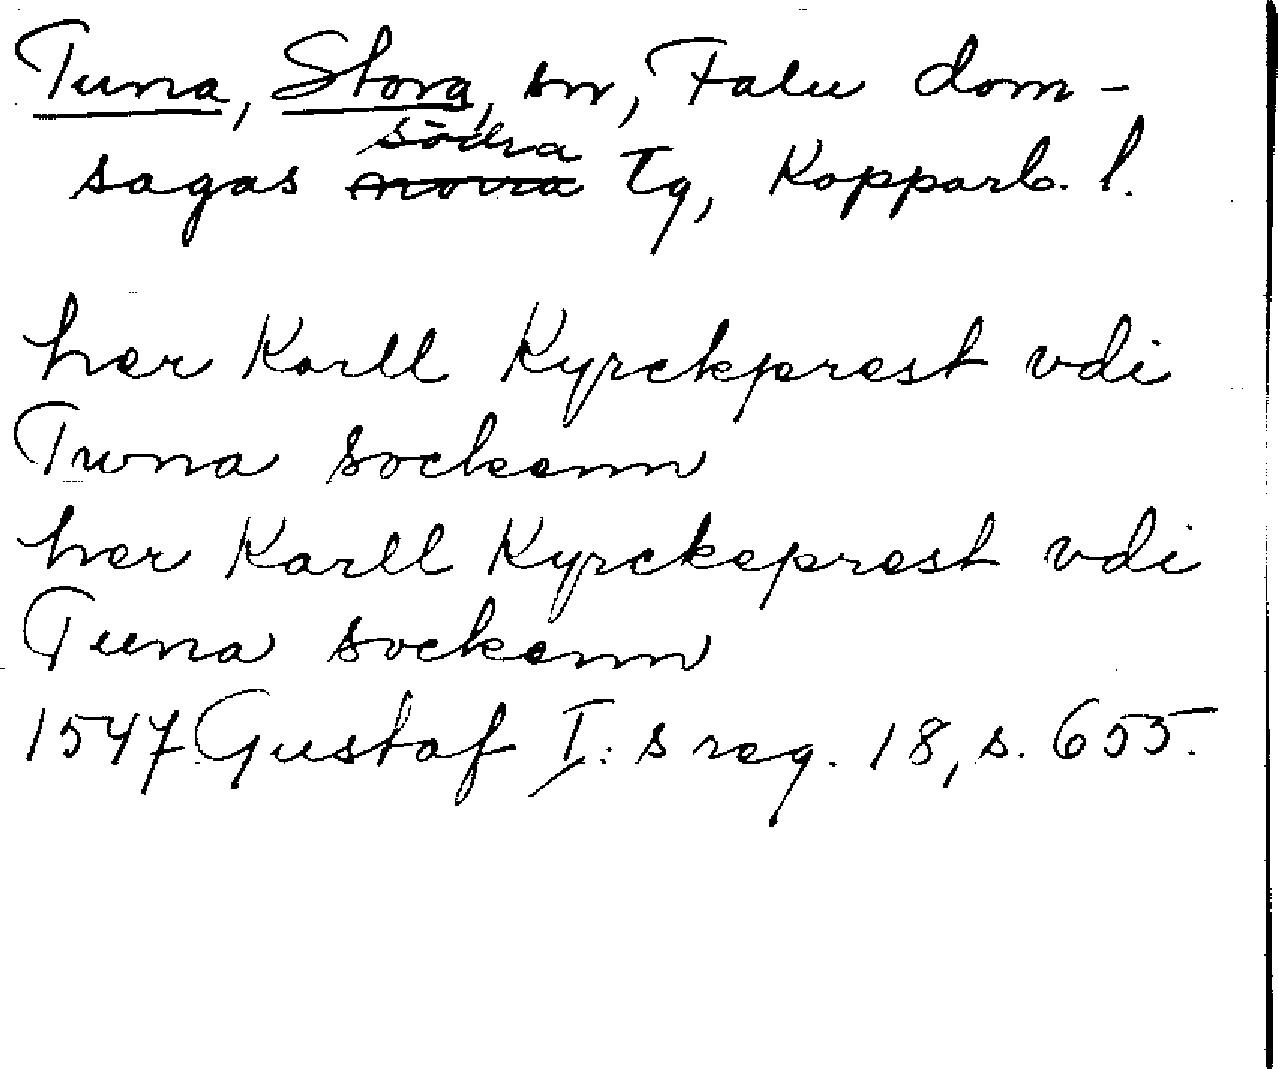 Tuna, Stora, sn, Falu dom-
södra
sagas norra Tg, Kopparb. l.
her Karll Kyrckprest vdi
Twna sockenn
her Karll Kyrckeprest vdi
Tuna sockenn
1547 Gustaf I: s reg. 18, s. 655.